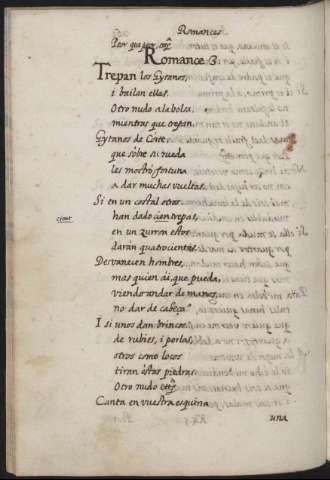 Romances
Romance 3
Trepan los Gytanos,
i bailan ellas.
Otro nudo a la bolsa,
mientras que trepan.
Gytanos de Corte
que sobre su rueda
les mostrò fortuna
a dar muchas vueltas.
Si en un costal otros
cient. han dado cien trepas,
en un zurron estos
daràn quatrocientas.
Desvanecen hombres,
mas quien ai, que pueda,
viendo andar de manos,
no dar de cabeça.
I si unos dan brincos
de rubies, i perlas,
otros como locos
tiran estas piedras.
Otro nudo
Canta en vuestra esquina
una